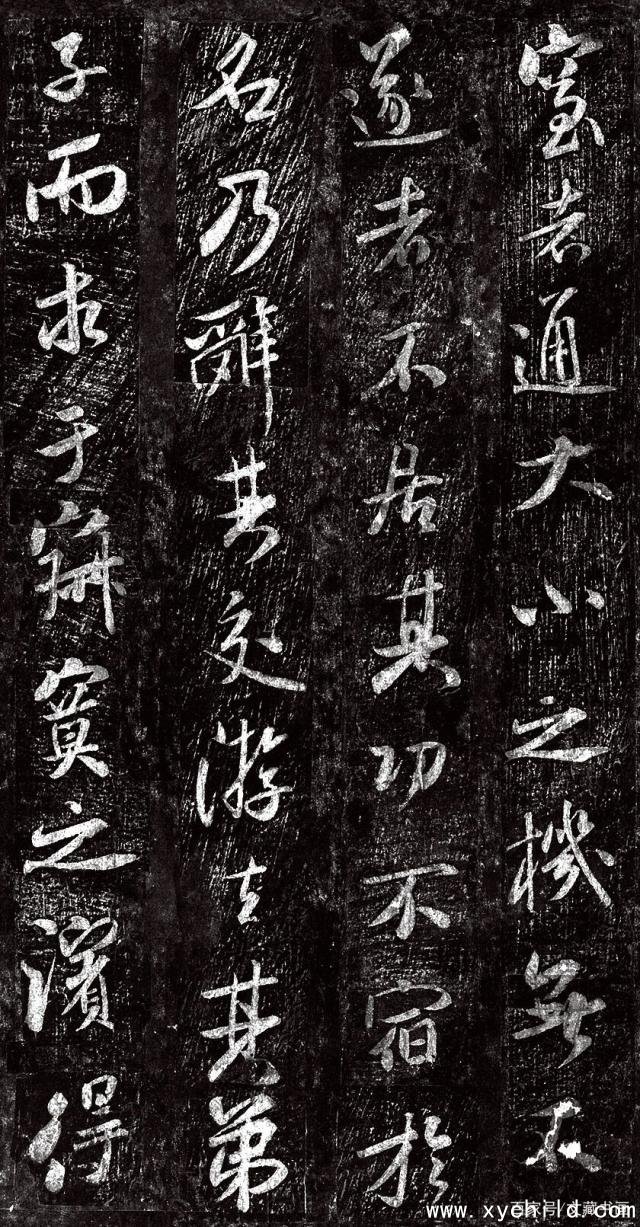 窒者通大小之機無不
遂者不居其功不宿於
名乃辭其交游去其弟
子而求于寂寞之濱得
www.xychild.com